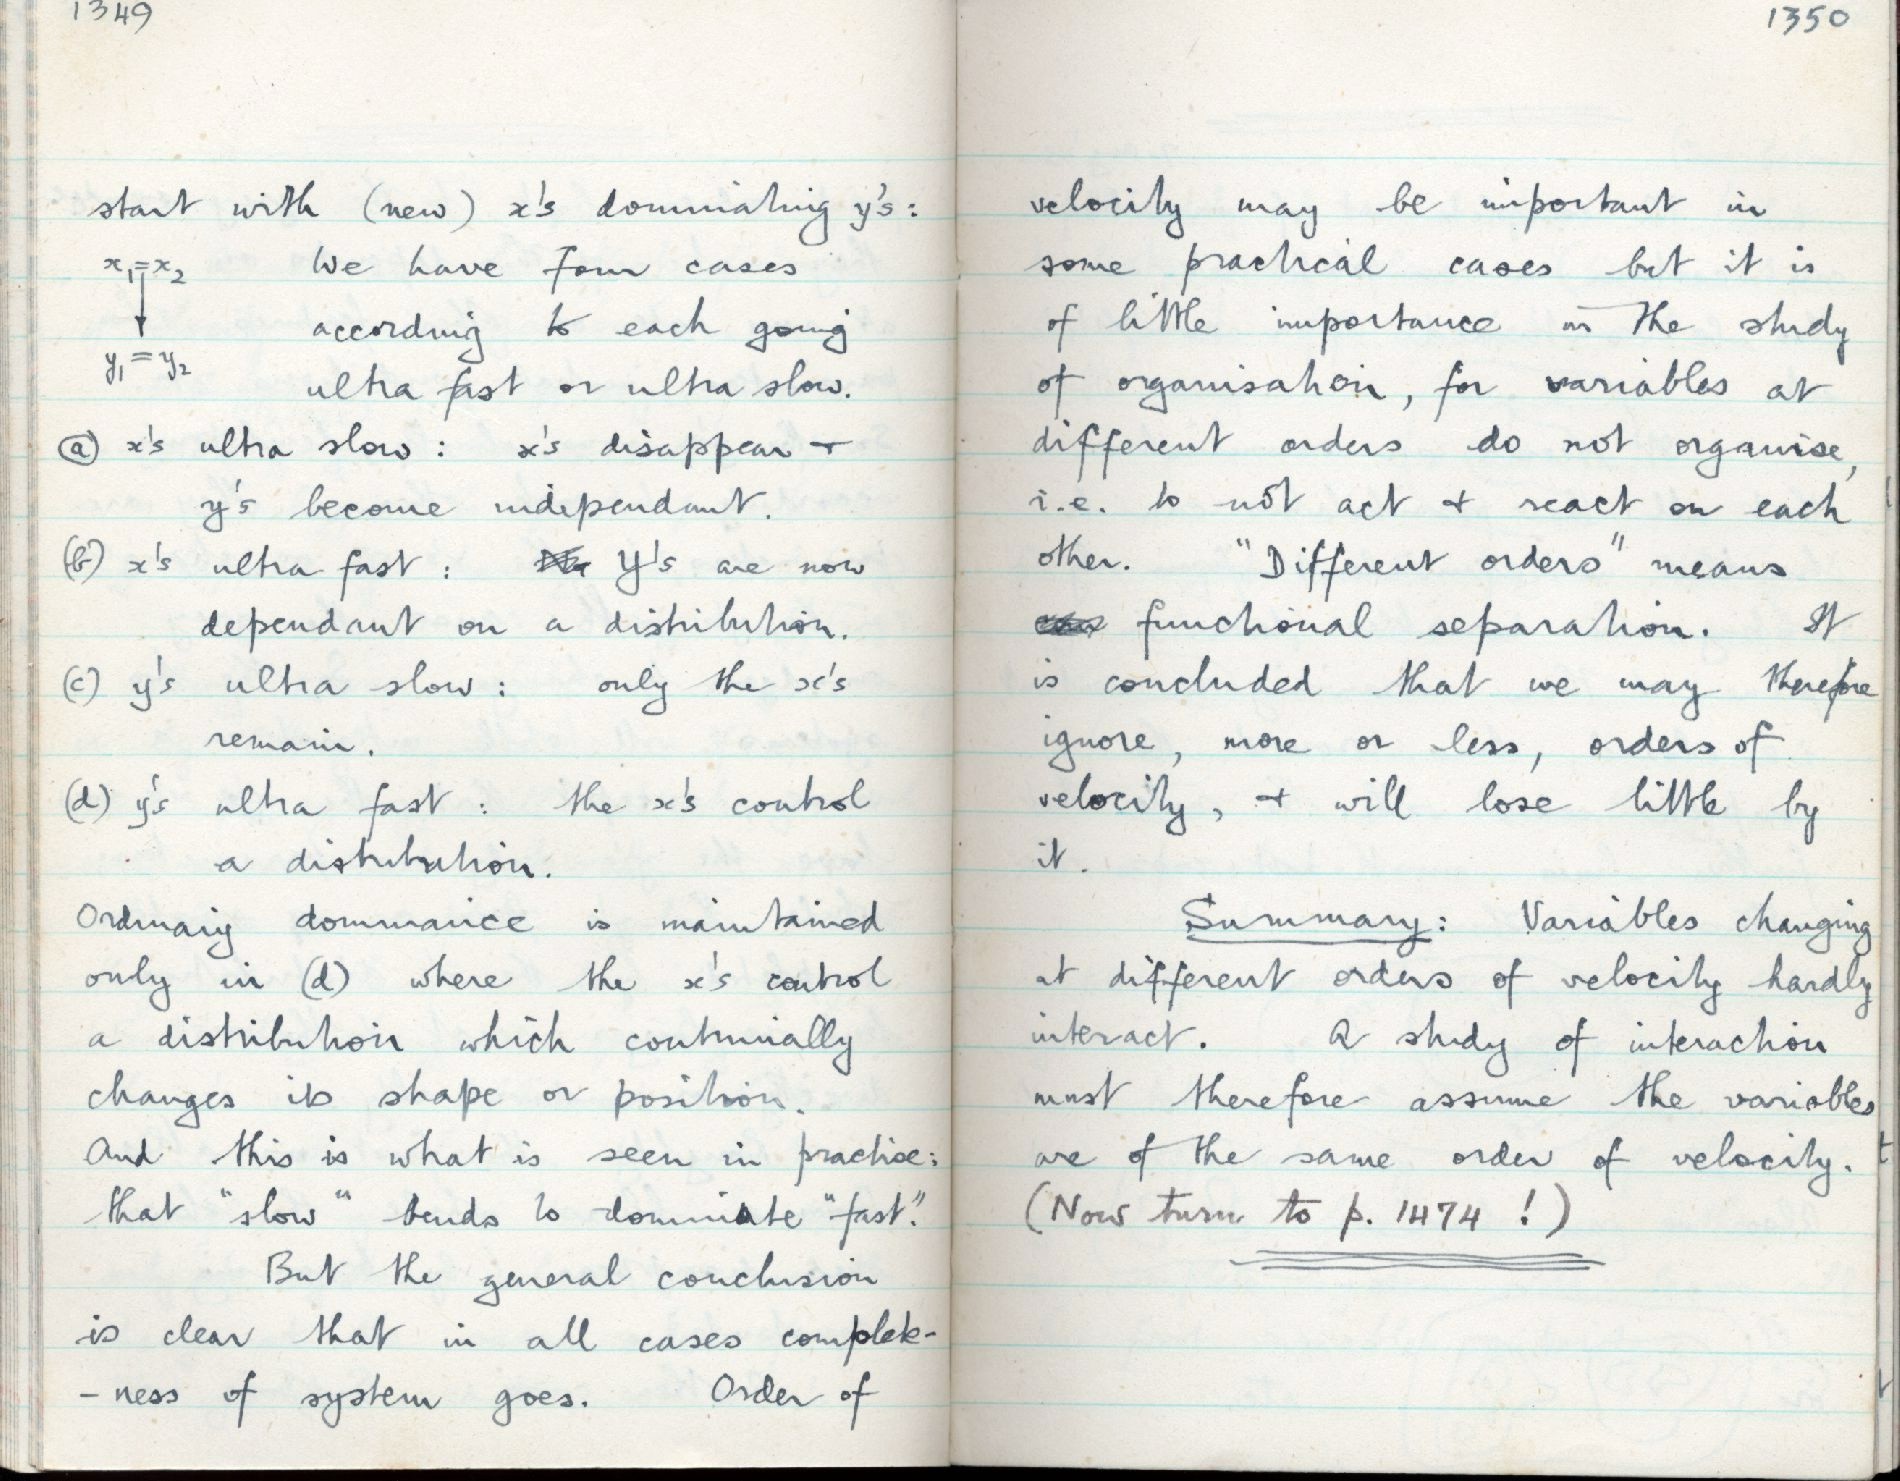 1349
start with (new) x's dominating y's:
x₁=x₂ We have four cases
according to each going
y₁=y₂
ultra fast or ultra slow.
(a) x's ultra slow: x's disappear +
y's become independant.
(b) x's ultra fast: Y's are now
dependant on a distribution.
(c) y's ultra slow: only the x's
remain.
(d) y's ultra fast: the x's control
a distribution.
Ordinary dominance is maintained
only in (d) where the x's control
a distribution which continually
changes its shape or position.
And this is what is seen in practise:
that "slow" tends to dominate "fast".
But the general conclusion
is clear that in all cases complete-
-ness of system goes. Order of
1350
velocity may be important in
some practical cases but it is
of little importance in the study
of organisation, for variables at
different orders do not organise,
i.e. to not act + react on each
other. "Different orders" means
functional separation. It
is concluded that we may therefore
ignore, more or less, orders of
velocity, + will lose little by
it.
Summary: Variables changing
at different orders of velocity hardly
interact. A study of interaction
must therefore assume the variables
are of the same order of velocity.
(Now turn to p. 1474 !)